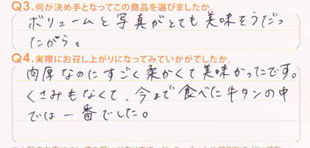 Q3.何が決め手となってこの商品を選びましたか
ボリュームと写真がとても美味そうだっ
たから。
Q4.実際にお召し上がりになってみていかがでしたか
肉厚なのにすごく柔かくて美味かったです。
くさみもなくて、今まで食べた牛タンの中
では一番でした。